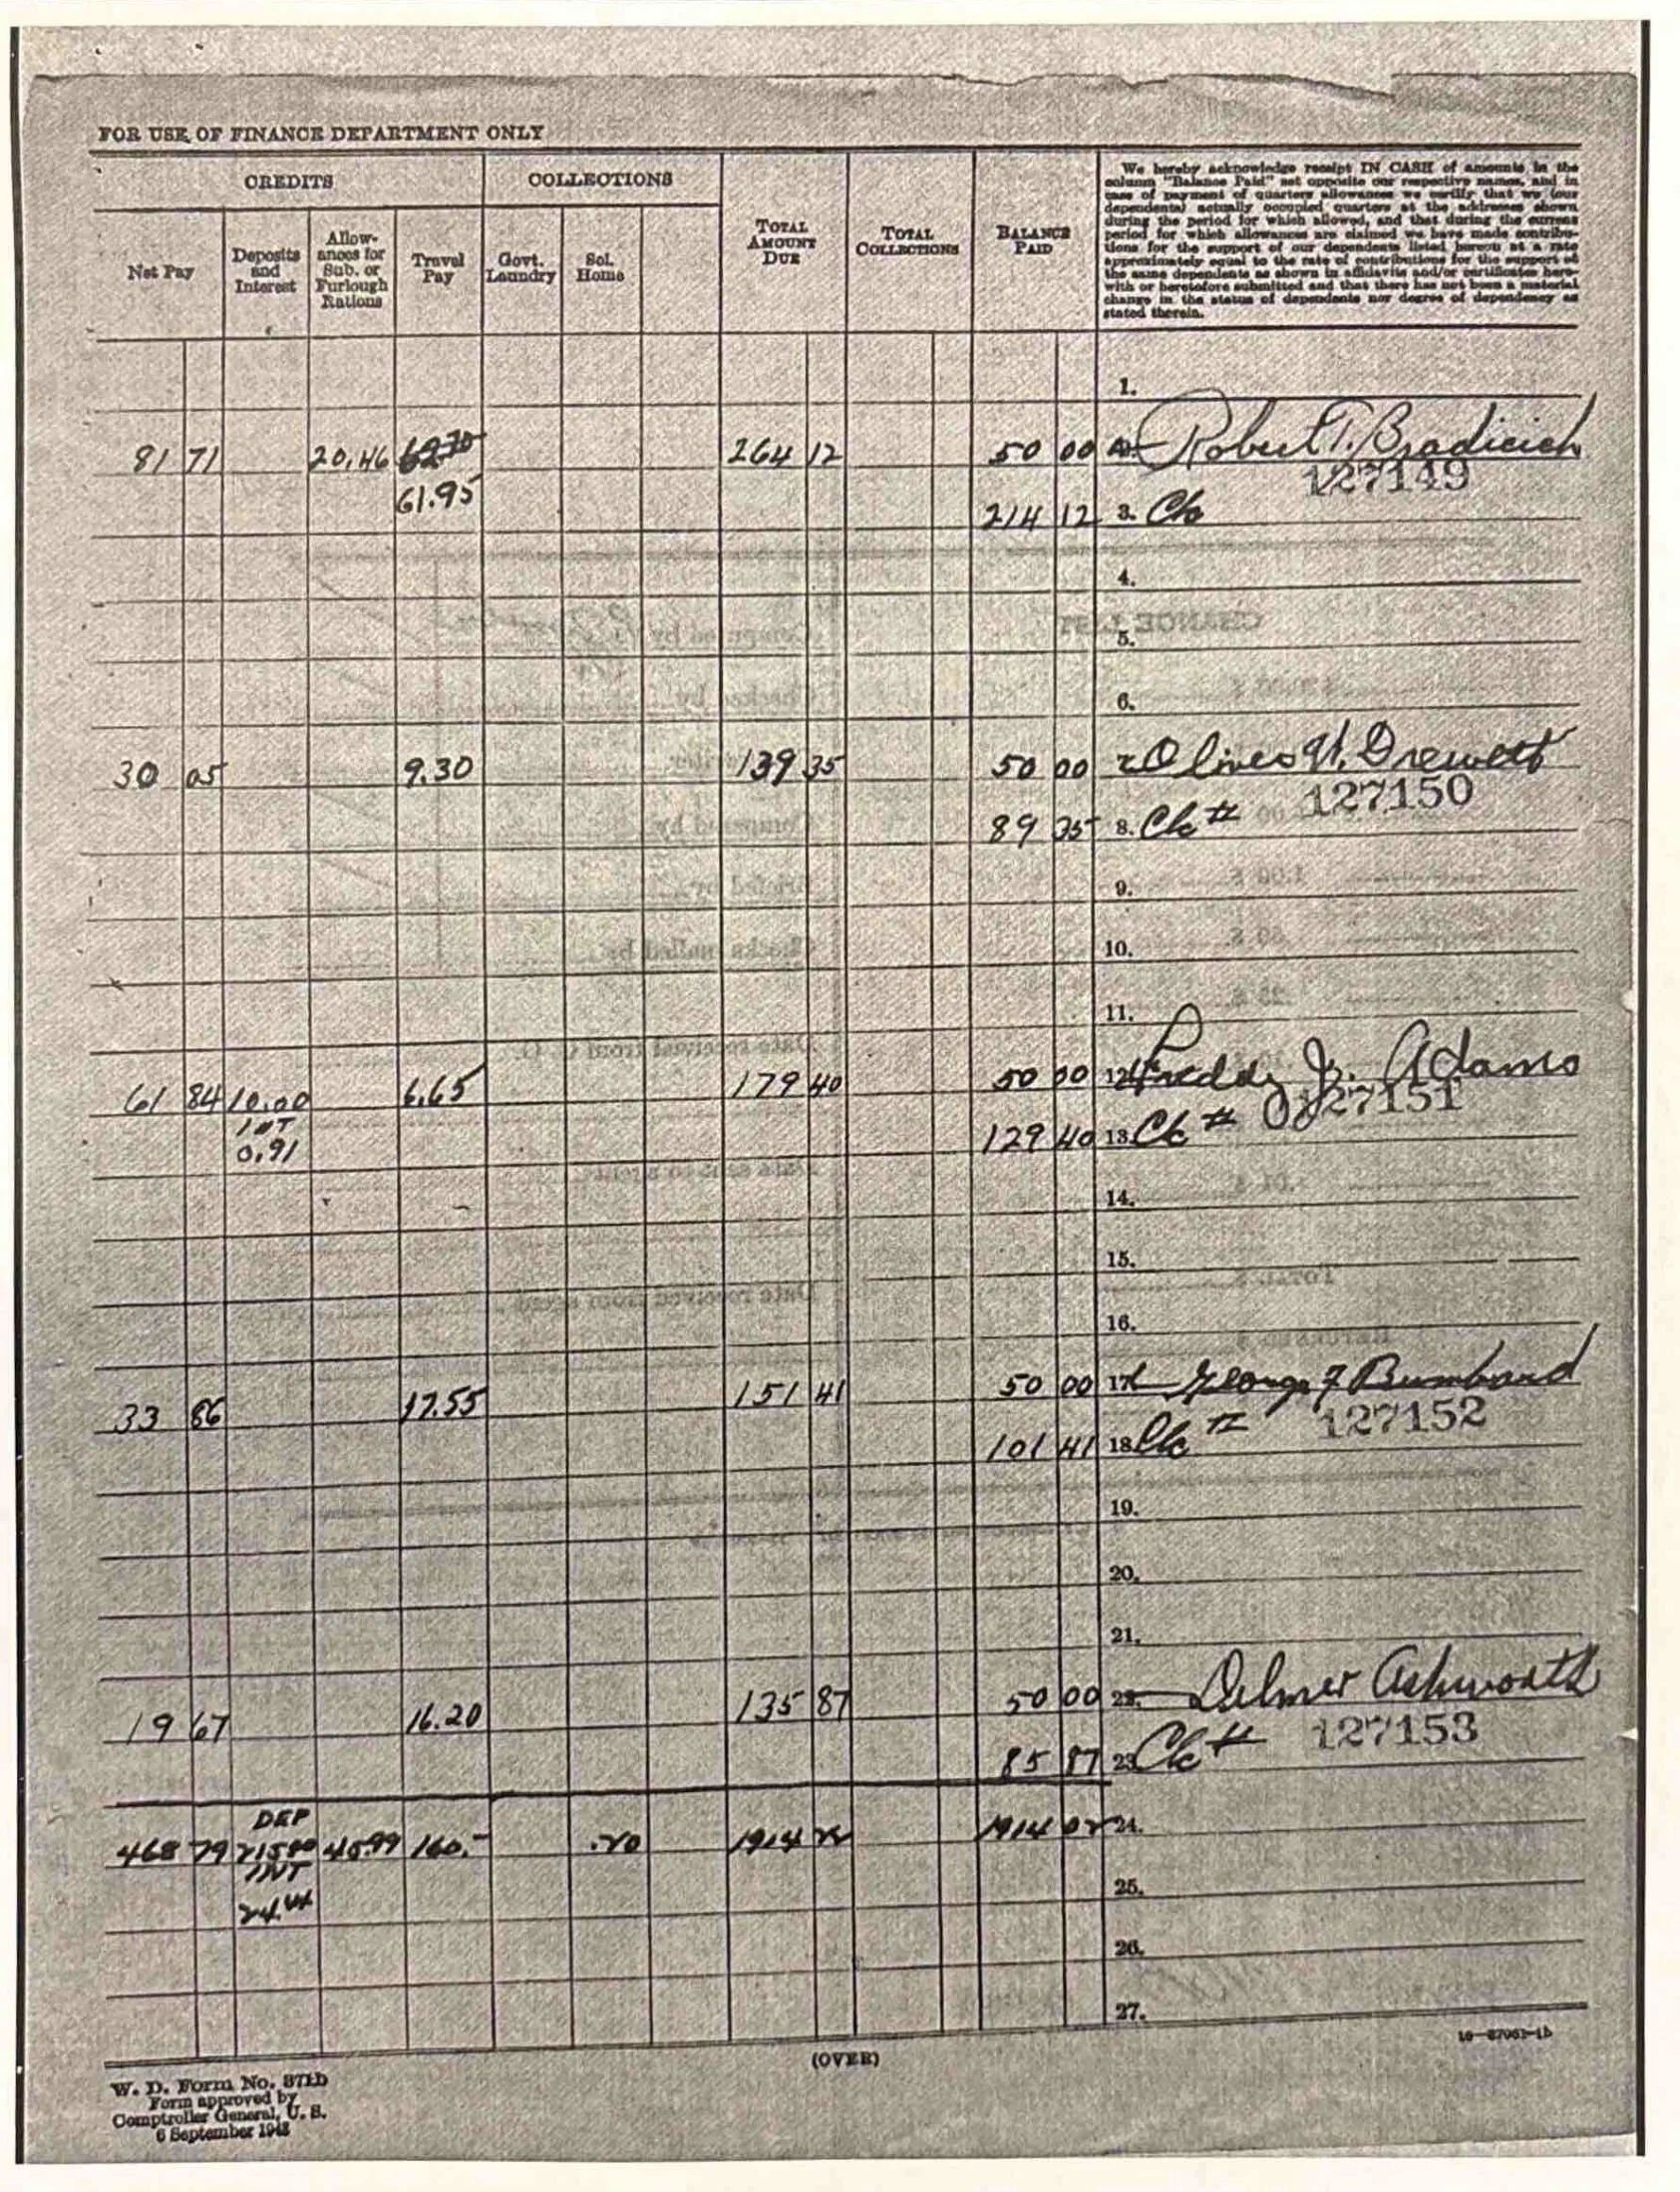 FOR USE OF FINANCE DEPARTMENT ONLY
CREDITS
COLLECTIONS
TOTAL AMOUNT DUE
TOTAL COLLECTIONS
BALANCE PAID
We hereby acknowledge receipt IN CASH of amounts in the
column "Balance Paid" set opposite our respective names, and in
case of payment of quarters allowances we certify that we (our
dependents) actually occupied quarters at the addresses shown
during the period for which allowed, and that during the current
period for which allowances are claimed we have made contribu-
tions for the support of our dependents listed hereon at a rate
approximately equal to the rate of contributions for the support of
the same dependents as shown in affidavits and/or certificates here-
with or heretofore submitted and that there has not been a material
change in the status of dependents nor degree of dependency as
stated therein.
Net Pay
Deposits and Interest
Allow-ances for Sub. or Furlough Rations
Travel Pay
Govt. Laundry
Sol. Home
1.
81 71 20.46 62.70 264 12 50 00 Robert T. Bradicich
127149
61.95 214 12 3. Ck
4.
5.
6.
30 05 9.30 139 35 50 00 Oliver W. Drewett
127150
89 35 8. Ck #
9.
10.
11.
61 84 10.00 6.65 179 40 50 00 12. Freddy J. Adams
127151
INT
0.91 129 40 13. Ck #
14.
15.
16.
33 86 17.55 151 41 50 00 17. George F Bumbard
127152
101 41 18. Ck #
19.
20.
21.
19 67 16.20 135 87 50 00 22. Delmer Ashworth
127153
85 87 23. Ck #
DEP
468 79 215.00 45.99 160.- .20 1914 1914 02 24.
INT
24.44
25.
26.
27.
16—37061-1b
(OVER)
W. D. Form No. 371b
Form approved by
Comptroller General, U. S.
6 September 1943